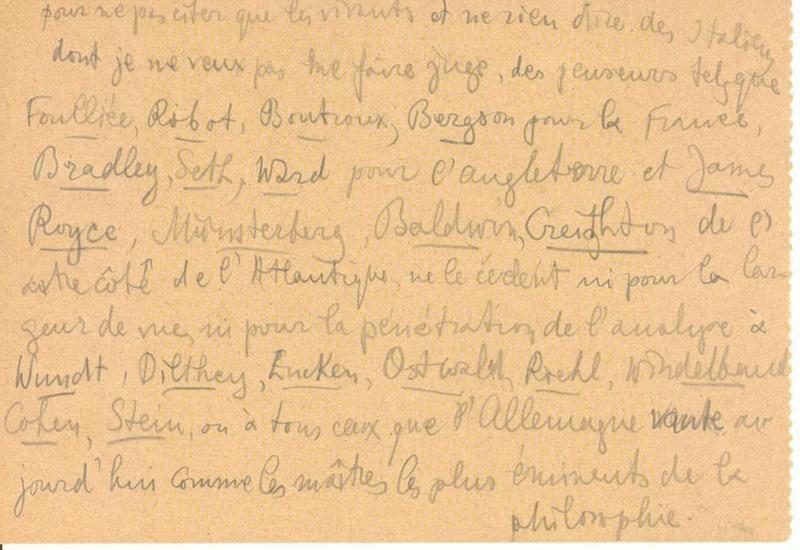 pour ne pas citer que les vivants et ne rien dire des Italiens
dont je ne veux pas me faire juge, des penseurs tels que
Fouillée, Ribot, Boutroux, Bergson pour la France,
Bradley, Seth, Ward pour l'angleterre et James
Royce, Münsterberg, Baldwin, Creighton de l'
autre côté de l'Atlantique, ne le cèdent ni pour la lar-
geur de vue, ni pour la pénétration de l'analyse à
Wundt, Dilthey, Eucken, Ostwald, Riehl, Windelband
Cohen, Stein, ou à tous ceux que l'Allemagne vante au
jourd'hui comme les maîtres les plus éminents de la
philosophie.